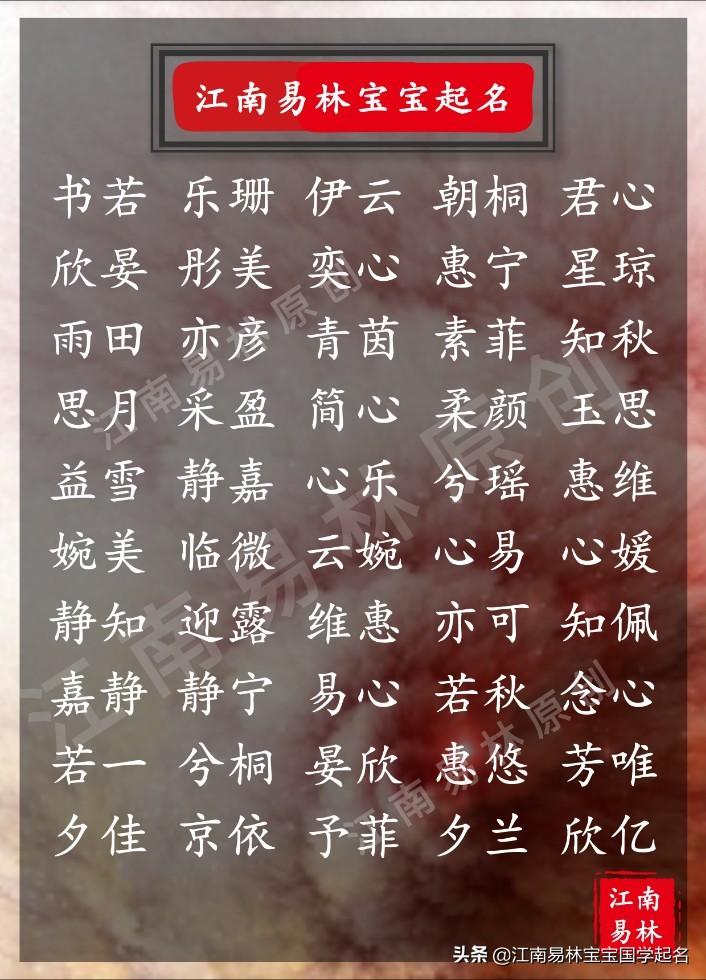 江南易林宝宝起名
书若 乐珊 伊云 朝桐 君心
欣晏 彤美 奕心 惠宁 星琼
雨田 亦彦 青茵 素菲 知秋
思月 采盈 简心 柔颜 玉思
益雪 静嘉 心乐 兮瑶 惠维
婉美 临微 云婉 心易 心媛
静知 迎露 维惠 亦可 知佩
嘉静 静宁 易心 若秋 念心
若一 兮桐 晏欣 惠悠 芳唯
夕佳 京依 予菲 夕兰 欣亿
江南易林原创
江南易林原创
江南易林原创
江南
易林
头条 @江南易林宝宝国学起名